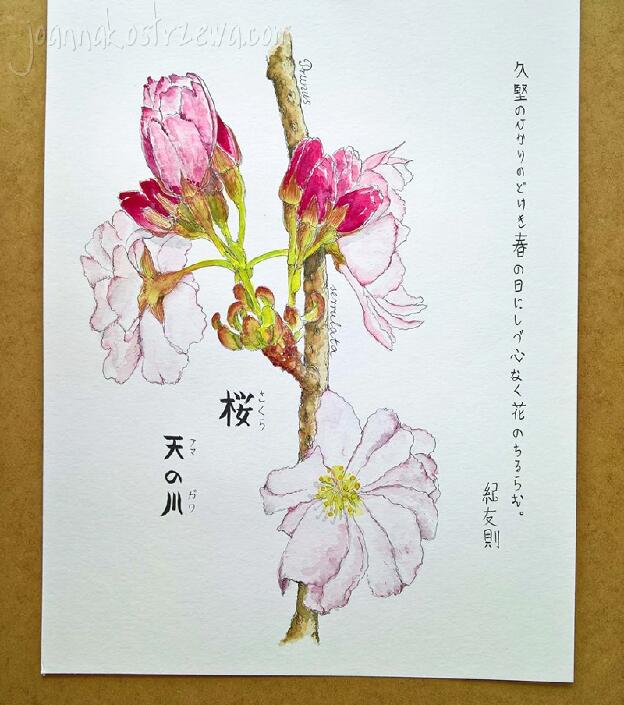 joannakostrzewa.com
Prunus
serrulata
久堅のひかりのどけき春の日にしづ心なく花のちるらむ。
紀友則
桜
さくら
天の川
アマ
ガワ